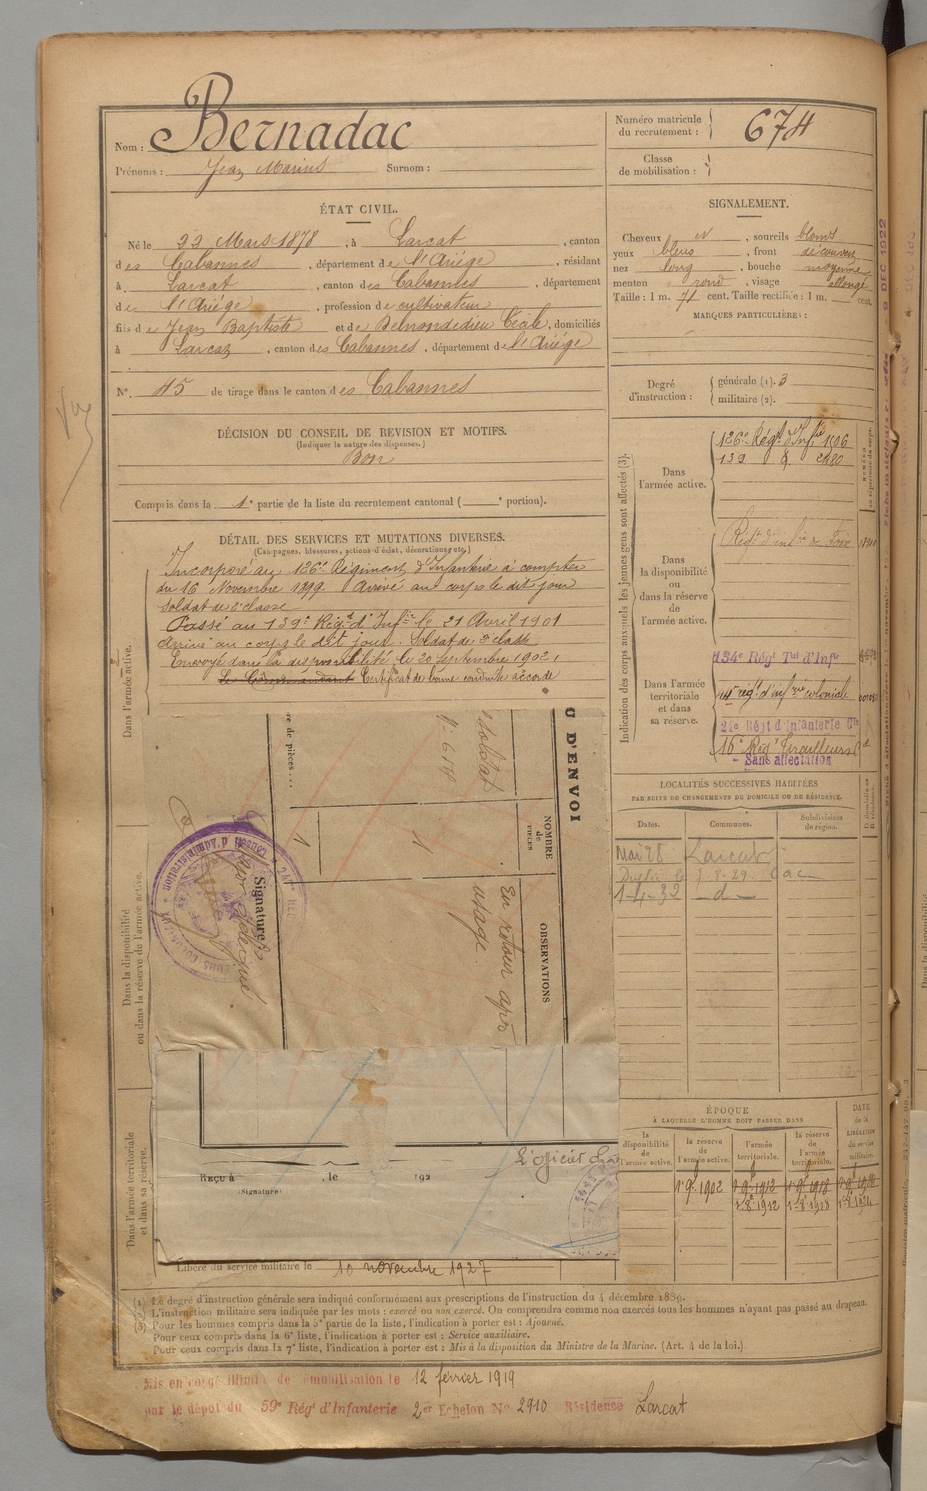 Nom : Bernadac
Prénoms : Jean Marius Surnom :
Numéro matricule du recrutement : 674
Classe de mobilisation :
ÉTAT CIVIL.
Né le 22 Mars 1878, à Larcat, canton
des Cabannes, département de l'Ariége, résidant
à Larcat, canton des Cabannes, département
de l'Ariége, profession de cultivateur
fils de Jean Baptiste et de Cécile, domiciliés
à Larcat, canton des Cabannes, département de l'Ariége
N°. 45 de tirage dans le canton des Cabannes
DÉCISION DU CONSEIL DE REVISION ET MOTIFS.
(Indiquer la nature des dispenses.)
Bon
Compris dans la 1e partie de la liste du recrutement cantonal ( e portion).
DÉTAIL DES SERVICES ET MUTATIONS DIVERSES.
(Campagnes, blessures, actions d'éclat, décorations, etc.)
Incorporé au 126e Régiment d'Infanterie à compter
du 16 Novembre 1899. Arrivé au corps le dit jour
soldat de 2e classe
Passé au 139e Régt d'Infie le 21 Avril 1901
Arrivé au corps le dit jour. Soldat de 2e classe
Envoyé dans la disponibilité le 20 Septembre 1902,
Le Commandant Certificat de bonne conduite accordé
SIGNALEMENT.
Cheveux , sourcils blonds
yeux bleus, front découvert
nez long, bouche moyenne
menton rond, visage allongé
Taille : 1 m. 71 cent. Taille rectifiée : 1 m. cent.
MARQUES PARTICULIÈRES :
Degré d'instruction : générale (1). 3
militaire (2).
Indication des corps auxquels les jeunes gens sont affectés (3).
Dans l'armée active.
126e Régt d'Infie 1106
139 d° 2480
Dans la disponibilité ou dans la réserve de l'armée active.
Régt d'infie de Foix
Dans l'armée territoriale et dans sa réserve.
134e Régt Tal d'Infie
14e régt d'infie coloniale
24e Régt d'Infanterie Cle
16e Régt Tirailleurs
Sans affectation
LOCALITÉS SUCCESSIVES HABITÉES
PAR SUITE DE CHANGEMENTS DE DOMICILE OU DE RÉSIDENCE.
Dates. Communes. Subdivisions de région.
Mai 28 Larcat
1-4-32 — d —
D'ENVOI
NOMBRE de PIÈCES
OBSERVATIONS
soldat
1
En retour après usage.
de pièces... 1
Signature
Conseil d'Administration
L'officier
REÇU à , le 192
(Signature)
Dans l'armée active.
Dans la disponibilité ou dans la réserve de l'armée active.
Dans l'armée territoriale et dans sa réserve.
ÉPOQUE
À LAQUELLE L'HOMME DOIT PASSER DANS
la disponibilité de l'armée active.
la réserve de l'armée active.
l'armée territoriale.
la réserve de l'armée territoriale.
DATE de la LIBÉRATION du service militaire.
1r 9e 1902
Libéré du service militaire le 10 novembre 1927
Le degré d'instruction générale sera indiqué conformément aux prescriptions de l'instruction du 4 décembre 1889.
L'instruction militaire sera indiquée par les mots : exercé ou non exercé. On comprendra comme non exercés tous les hommes n'ayant pas passé au drapeau.
Pour les hommes compris dans la 5e partie de la liste, l'indication à porter est : Ajourné.
Pour ceux compris dans la 6e liste, l'indication à porter est : Service auxiliaire.
Pour ceux compris dans la 7e liste, l'indication à porter est : Mis à la disposition du Ministre de la Marine. (Art. 4 de la loi.)
Mis en congé illimité de démobilisation le 12 février 1919
par le dépôt du 59e Régt d'Infanterie 2er Echelon N° 2910 Résidence Larcat